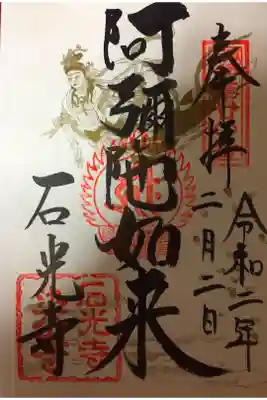 奉拝
令和二年
二月二日
阿彌陀如来
石光寺
石光寺